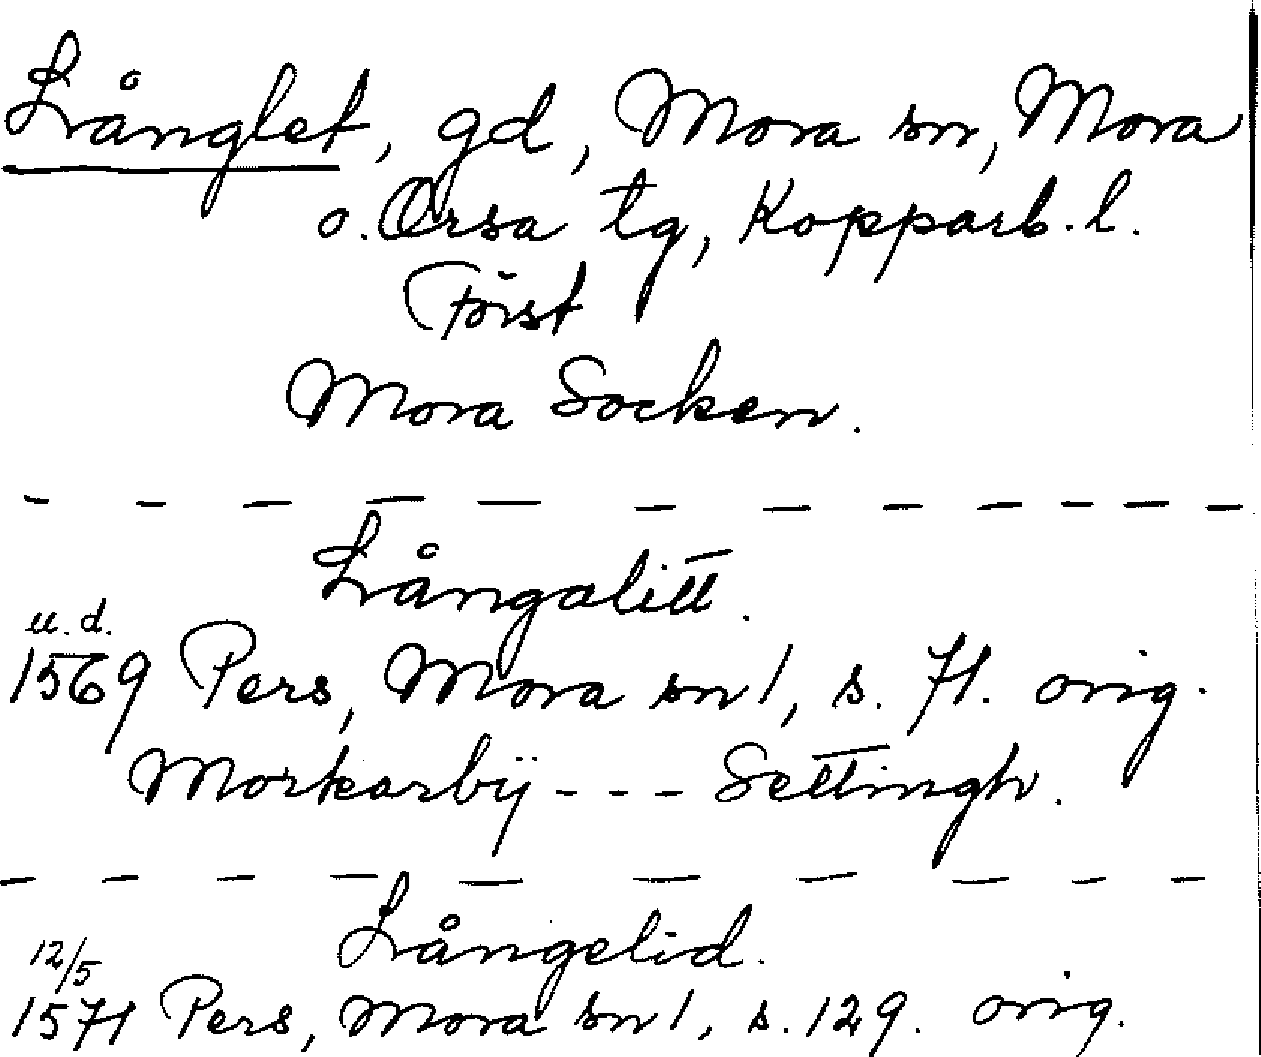 Långlet, gd, Mora sn, Mora
o. Orsa tg, Kopparb. l.
Först
Mora Socken.
Långalitt.
u. d.
1569 Pers, Mora sn 1, s. 71. orig.
Morkarbÿ - - - Settingh.
Långelid.
12/5
1571 Pers, Mora sn 1, s. 129. orig.